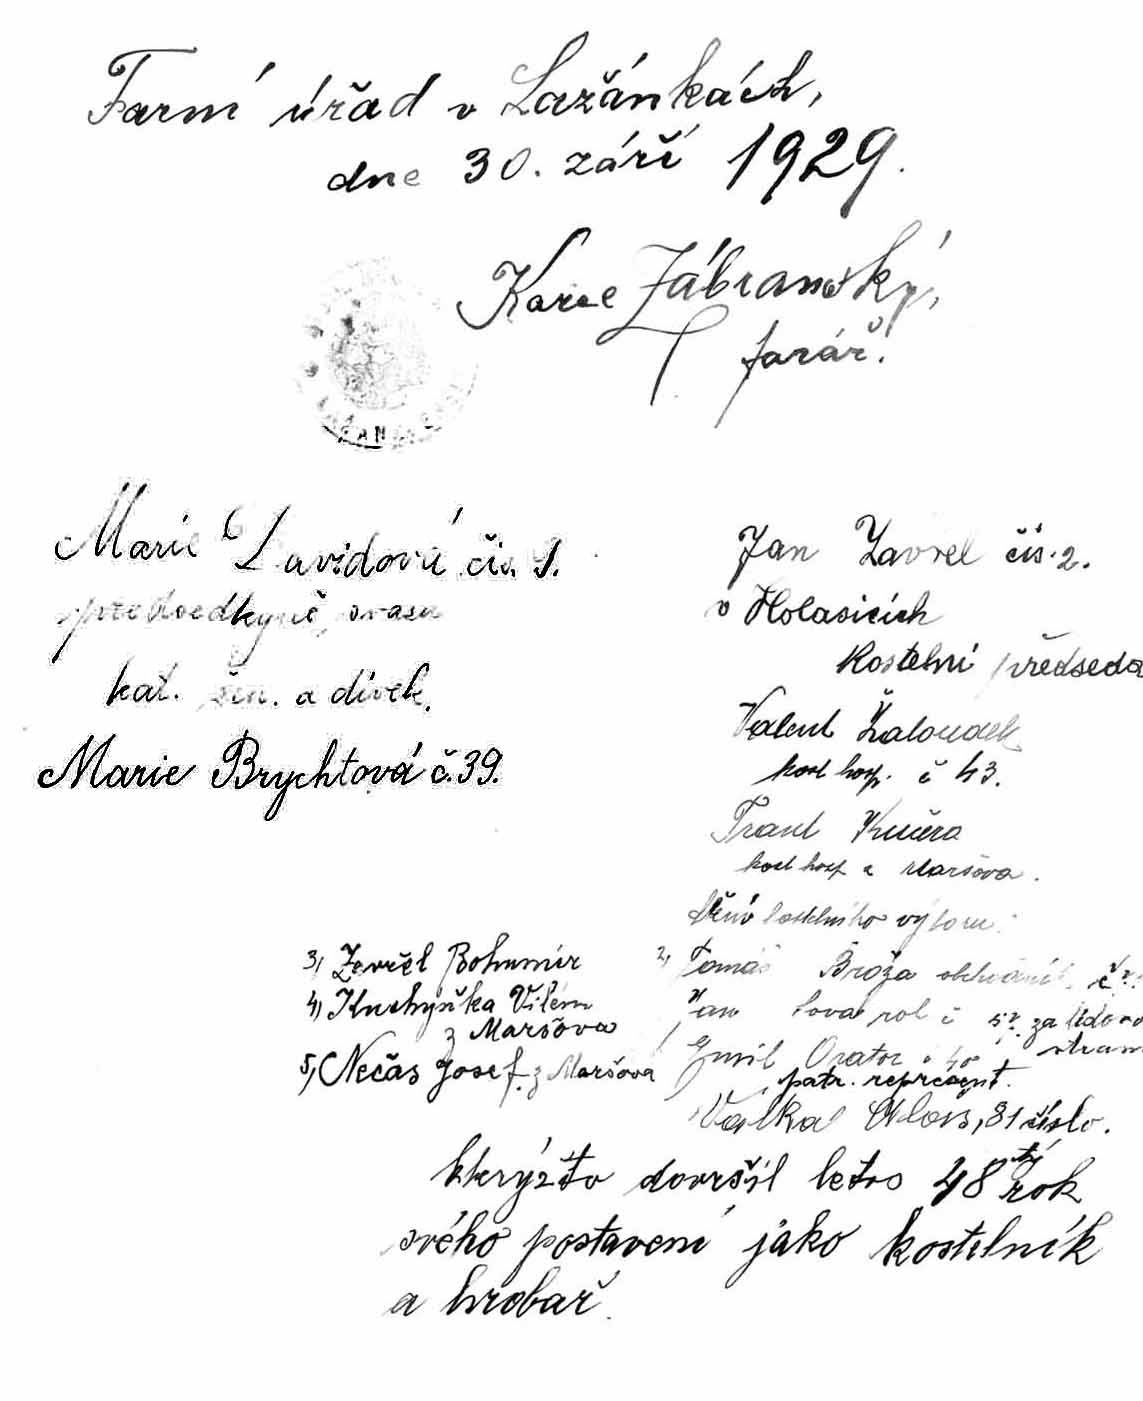 Farní úřad v Lažánkách,
dne 30. září 1929.
Karel Zábranský,
farář.
Marie Davidová čís. 1.
předsedkyně svazu
kat. žen. a dívek.
Marie Brychtová č. 39.
Jan Zavřel čís. 2.
v Holasicích
kostelní předseda
Valent Žaloudek
kost hosp. č 43.
Frant Kučera
kost hosp z Maršova.
výboru:
3, Zavřel Bohumír
4, Kuchyňka Vilém
z Maršova
5, Nečas Josef z Maršova
2, Tomáš Bróža
Jan rol č za lidovou
stranu
Emil Orator
patr. represent.
Válka Alois, 81 číslo.
kterýžto dovršil letos 48tý rok
svého postavení jako kostelník
a hrobař.